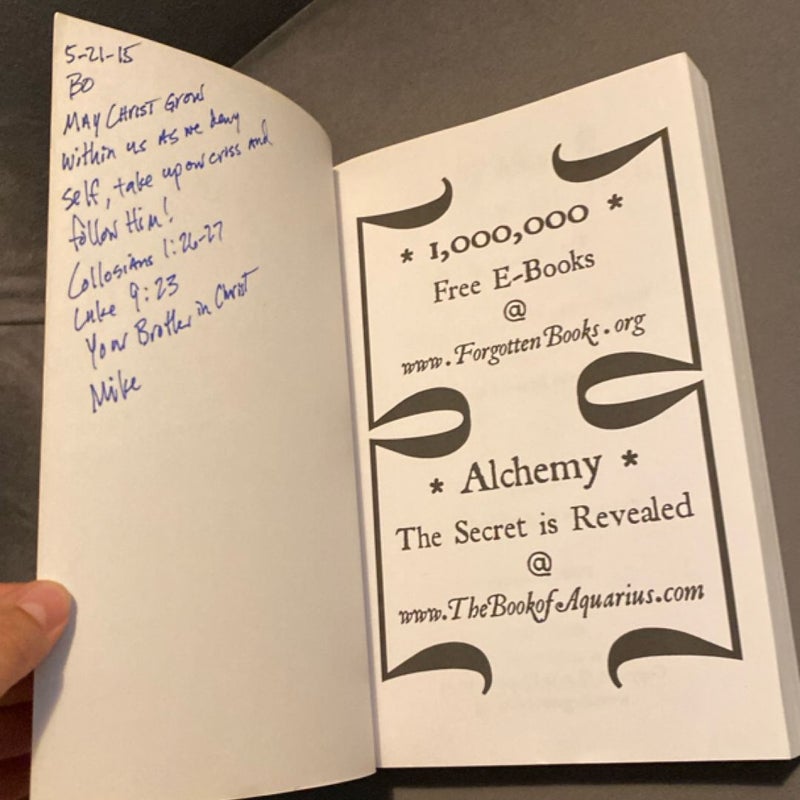 5-21-15
BO
MAY CHRIST GROW
within us AS we deny
self, take up our cross and
follow Him!
Collosians 1:26-27
Luke 9:23
Your Brother in Christ
Mike
* 1,000,000 *
Free E-Books
@
www.ForgottenBooks.org
* Alchemy *
The Secret is Revealed
@
www.TheBookofAquarius.com